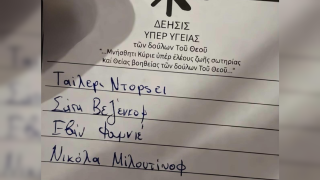 ΔΕΗΣΙΣ
ΥΠΕΡ ΥΓΕΙΑΣ
τῶν δούλων Τοῦ Θεοῦ
"...Μνήσθητι Κύριε ὑπέρ ἐλέους ζωῆς σωτηρίας
καί Θείας βοηθείας τῶν δούλων Τοῦ Θεοῦ..."
Ταϊλερ Ντορσεϊ
Σάσα Βεζένκοφ
Εβάν Φουρνιέ
Νικόλα Μιλουτίνοφ